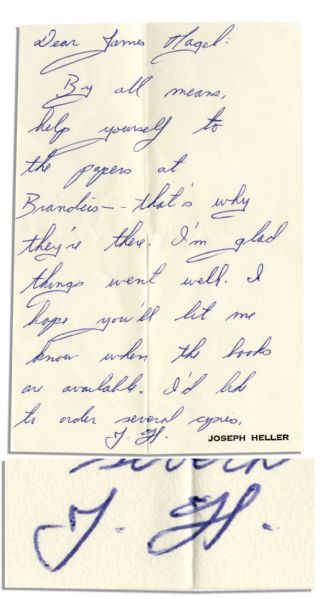 Dear James Nagel:
By all means,
help yourself to
the papers at
Brandeis -- that's why
they're there. I'm glad
things went well. I
hope you'll let me
know when the books
are available. I'd like
to order several copies,
J. H.
JOSEPH HELLER
several
J. H.